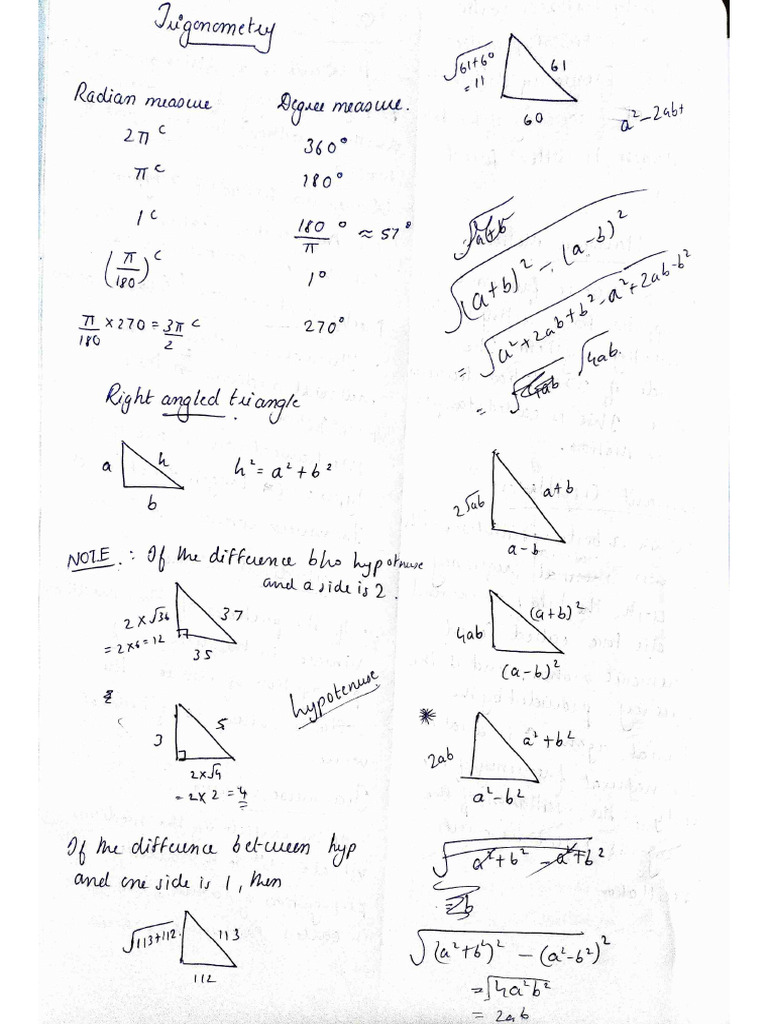 Trigonometry
Radian measure Degree measure.
2π^c 360°
π^c 180°
1^c 180/π ° ≈ 57°
(π/180)^c 1°
π/180 × 270 = 3π/2 ^c 270°
Right angled triangle.
a h b
h² = a² + b²
NOTE.: If the difference b/w hypotenuse
and a side is 2.
2 × √36
= 2×6 = 12
37
35
hypotenuse
3
5
2×√4
= 2×2 = 4
If the difference between hyp
and one side is 1, then
√113+112
113
112
√61+60
= 11
61
60
a² - 2ab+
√a+b
√(a+b)² - (a-b)²
= √a²+2ab+b²-a²+2ab-b²
= √4ab √4ab
2√ab
a+b
a-b
4ab
(a+b)²
(a-b)²
*
2ab
a²+b²
a²-b²
√a²+b² - a²+b²
√(a²+b²)² - (a²-b²)²
= √4a²b²
= 2ab